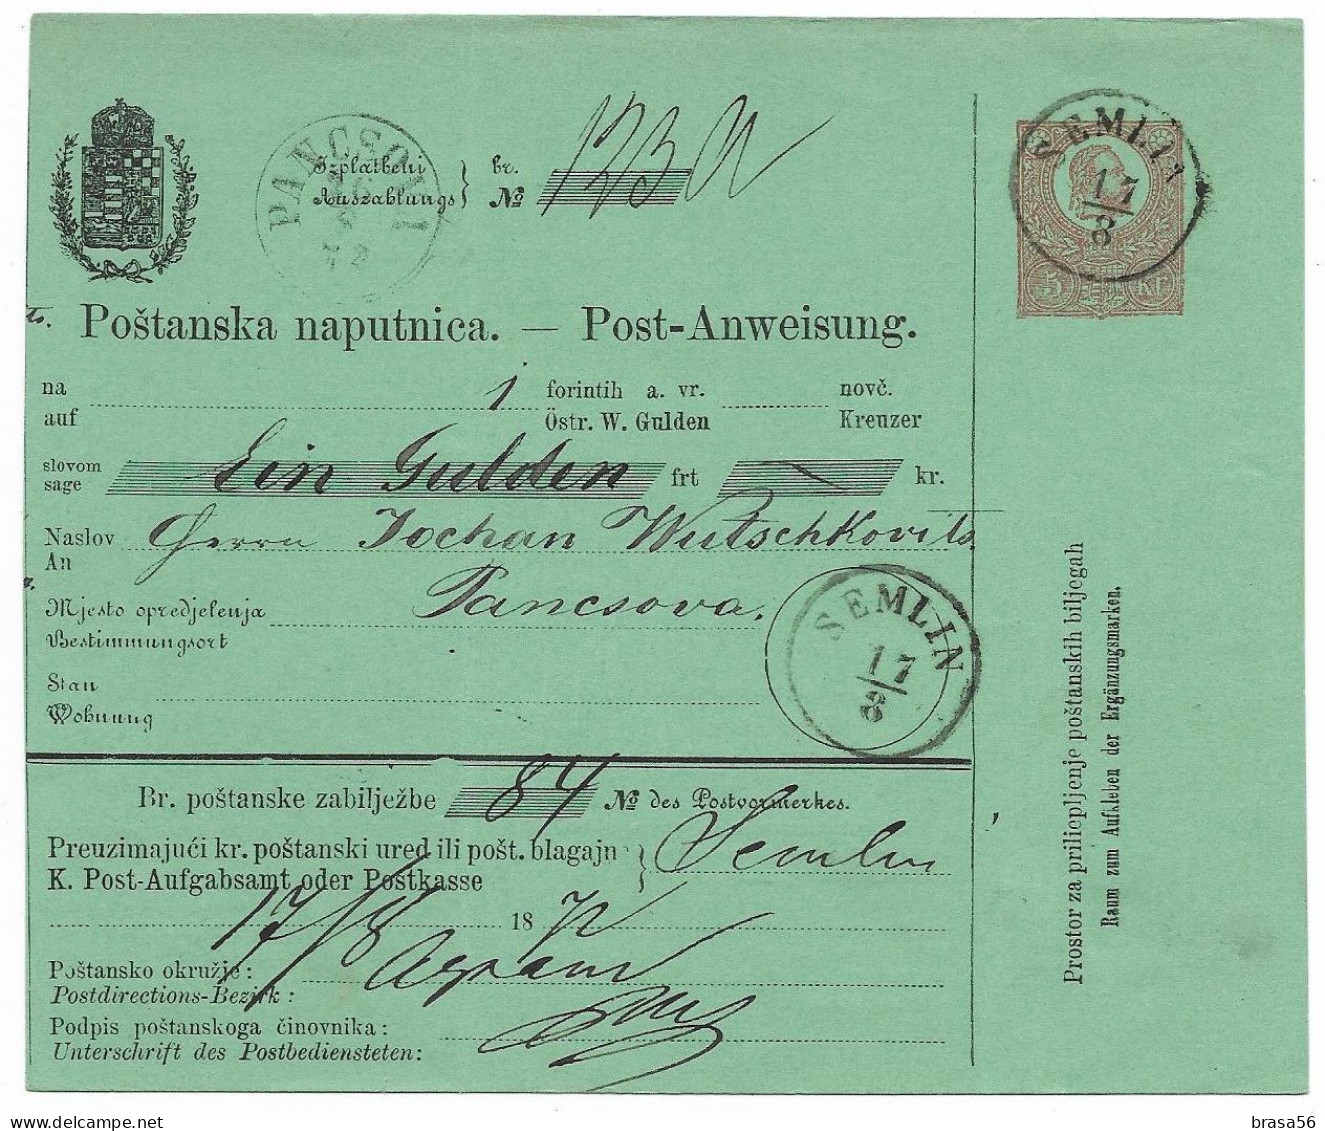 PANCSOVA
72
Izplatbeni
Auszahlungs
br.
№
123
SEMLIN
17
8
5 kr
Poštanska naputnica. — Post-Anweisung.
na 1 forintih a. vr. novč.
auf Östr. W. Gulden Kreuzer
slovom
sage
Ein Gulden frt — kr.
Naslov
An
Herrn Jochan Wutschkovits
Mjesto opredjelenja Pancsova.
Bestimmungsort
SEMLIN
17
8
Stan
Wohnung
Br. poštanske zabilježbe 84 № des Postvormerkes.
Preuzimajući kr. poštanski ured ili pošt. blagajn
K. Post-Aufgabsamt oder Postkasse
Semlin
17/8 1872
Poštansko okružje: Agram
Postdirections-Bezirk:
Podpis poštanskoga činovnika:
Unterschrift des Postbediensteten:
Prostor za priliepljenje poštanskih biljegah
Raum zum Aufkleben der Ergänzungsmarken.
delcampe.net
brasa56